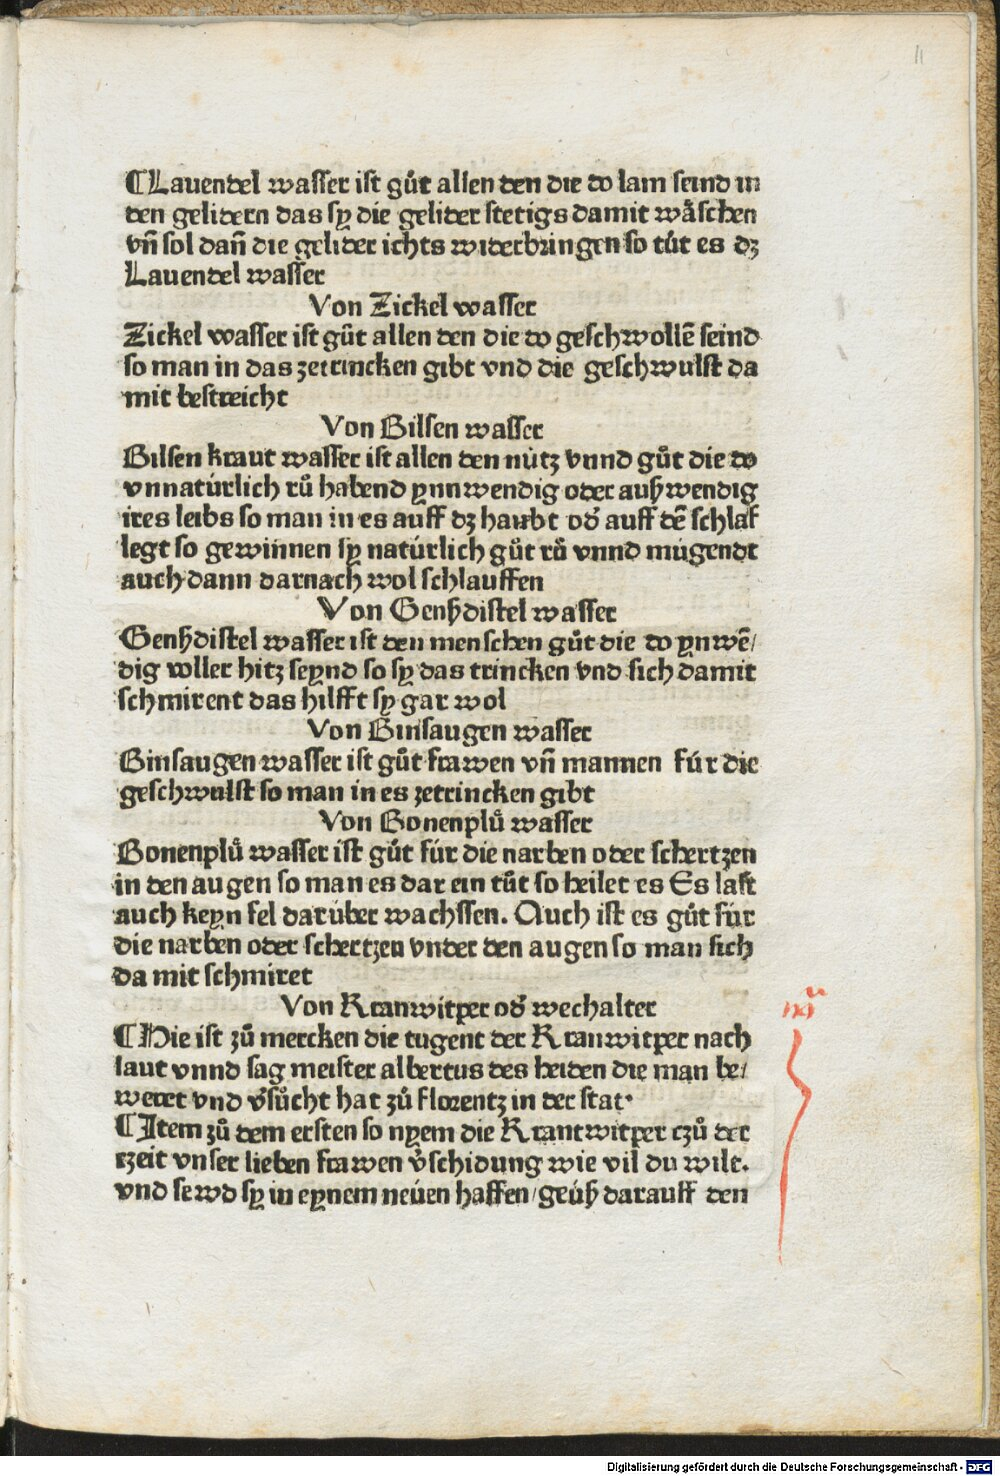 11
⸿Lauendel wasser ist gůt allen den die do lam seind in
den gelidern das sy die gelider stetigs damit wäschen
vñ sol dañ die gelider ichts widerbringen so tůt es dz
Lauendel wasser
Von Zickel wasser
Zickel wasser ist gůt allen den die do geschwollē seind
so man in das zetrincken gibt vnd die geschwulst da
mit bestreicht
Von Bilsen wasser
Bilsen kraut wasser ist allen den nütz vnnd gůt die do
vnnatürlich rů habend ynnwendig oder außwendig
ires leibs so man in es auff dz haubt od̓ auff dē schlaf
legt so gewinnen sy natürlich gůt rů vnnd mügendt
auch dann darnach wol schlauffen
Von Genßdistel wasser
Genßdistel wasser ist den menschen gůt die do ynwē/
dig voller hitz seynd so sy das trincken vnd sich damit
schmirent das hilfft sy gar wol
Von Binsaugen wasser
Binsaugen wasser ist gůt frawen vñ mannen für die
geschwulst so man in es zetrincken gibt
Von Bonenplů wasser
Bonenplů wasser ist gůt für die narben oder schertzen
in den augen so man es dar ein tůt so heilet es Es last
auch keyn fel darüber wachssen. Auch ist es gůt für
die narben oder schertzen vnder den augen so man sich
da mit schmiret
Von Kranwitper od̓ wechalter
⸿Hie ist zů mercken die tugent der Kranwitper nach
laut vnnd sag meister albertus des heiden die man be/
weret vnd v̓sůcht hat zů florentz in der stat·
⸿Item zů dem ersten so nyem die Krantwitper czů der
czeit vnser lieben frawen v̓schidung wie vil du wilt.
vnd sewd sy in eynem neüen haffen/geüß darauff den
Digitalisierung gefördert durch die Deutsche Forschungsgemeinschaft - DFG